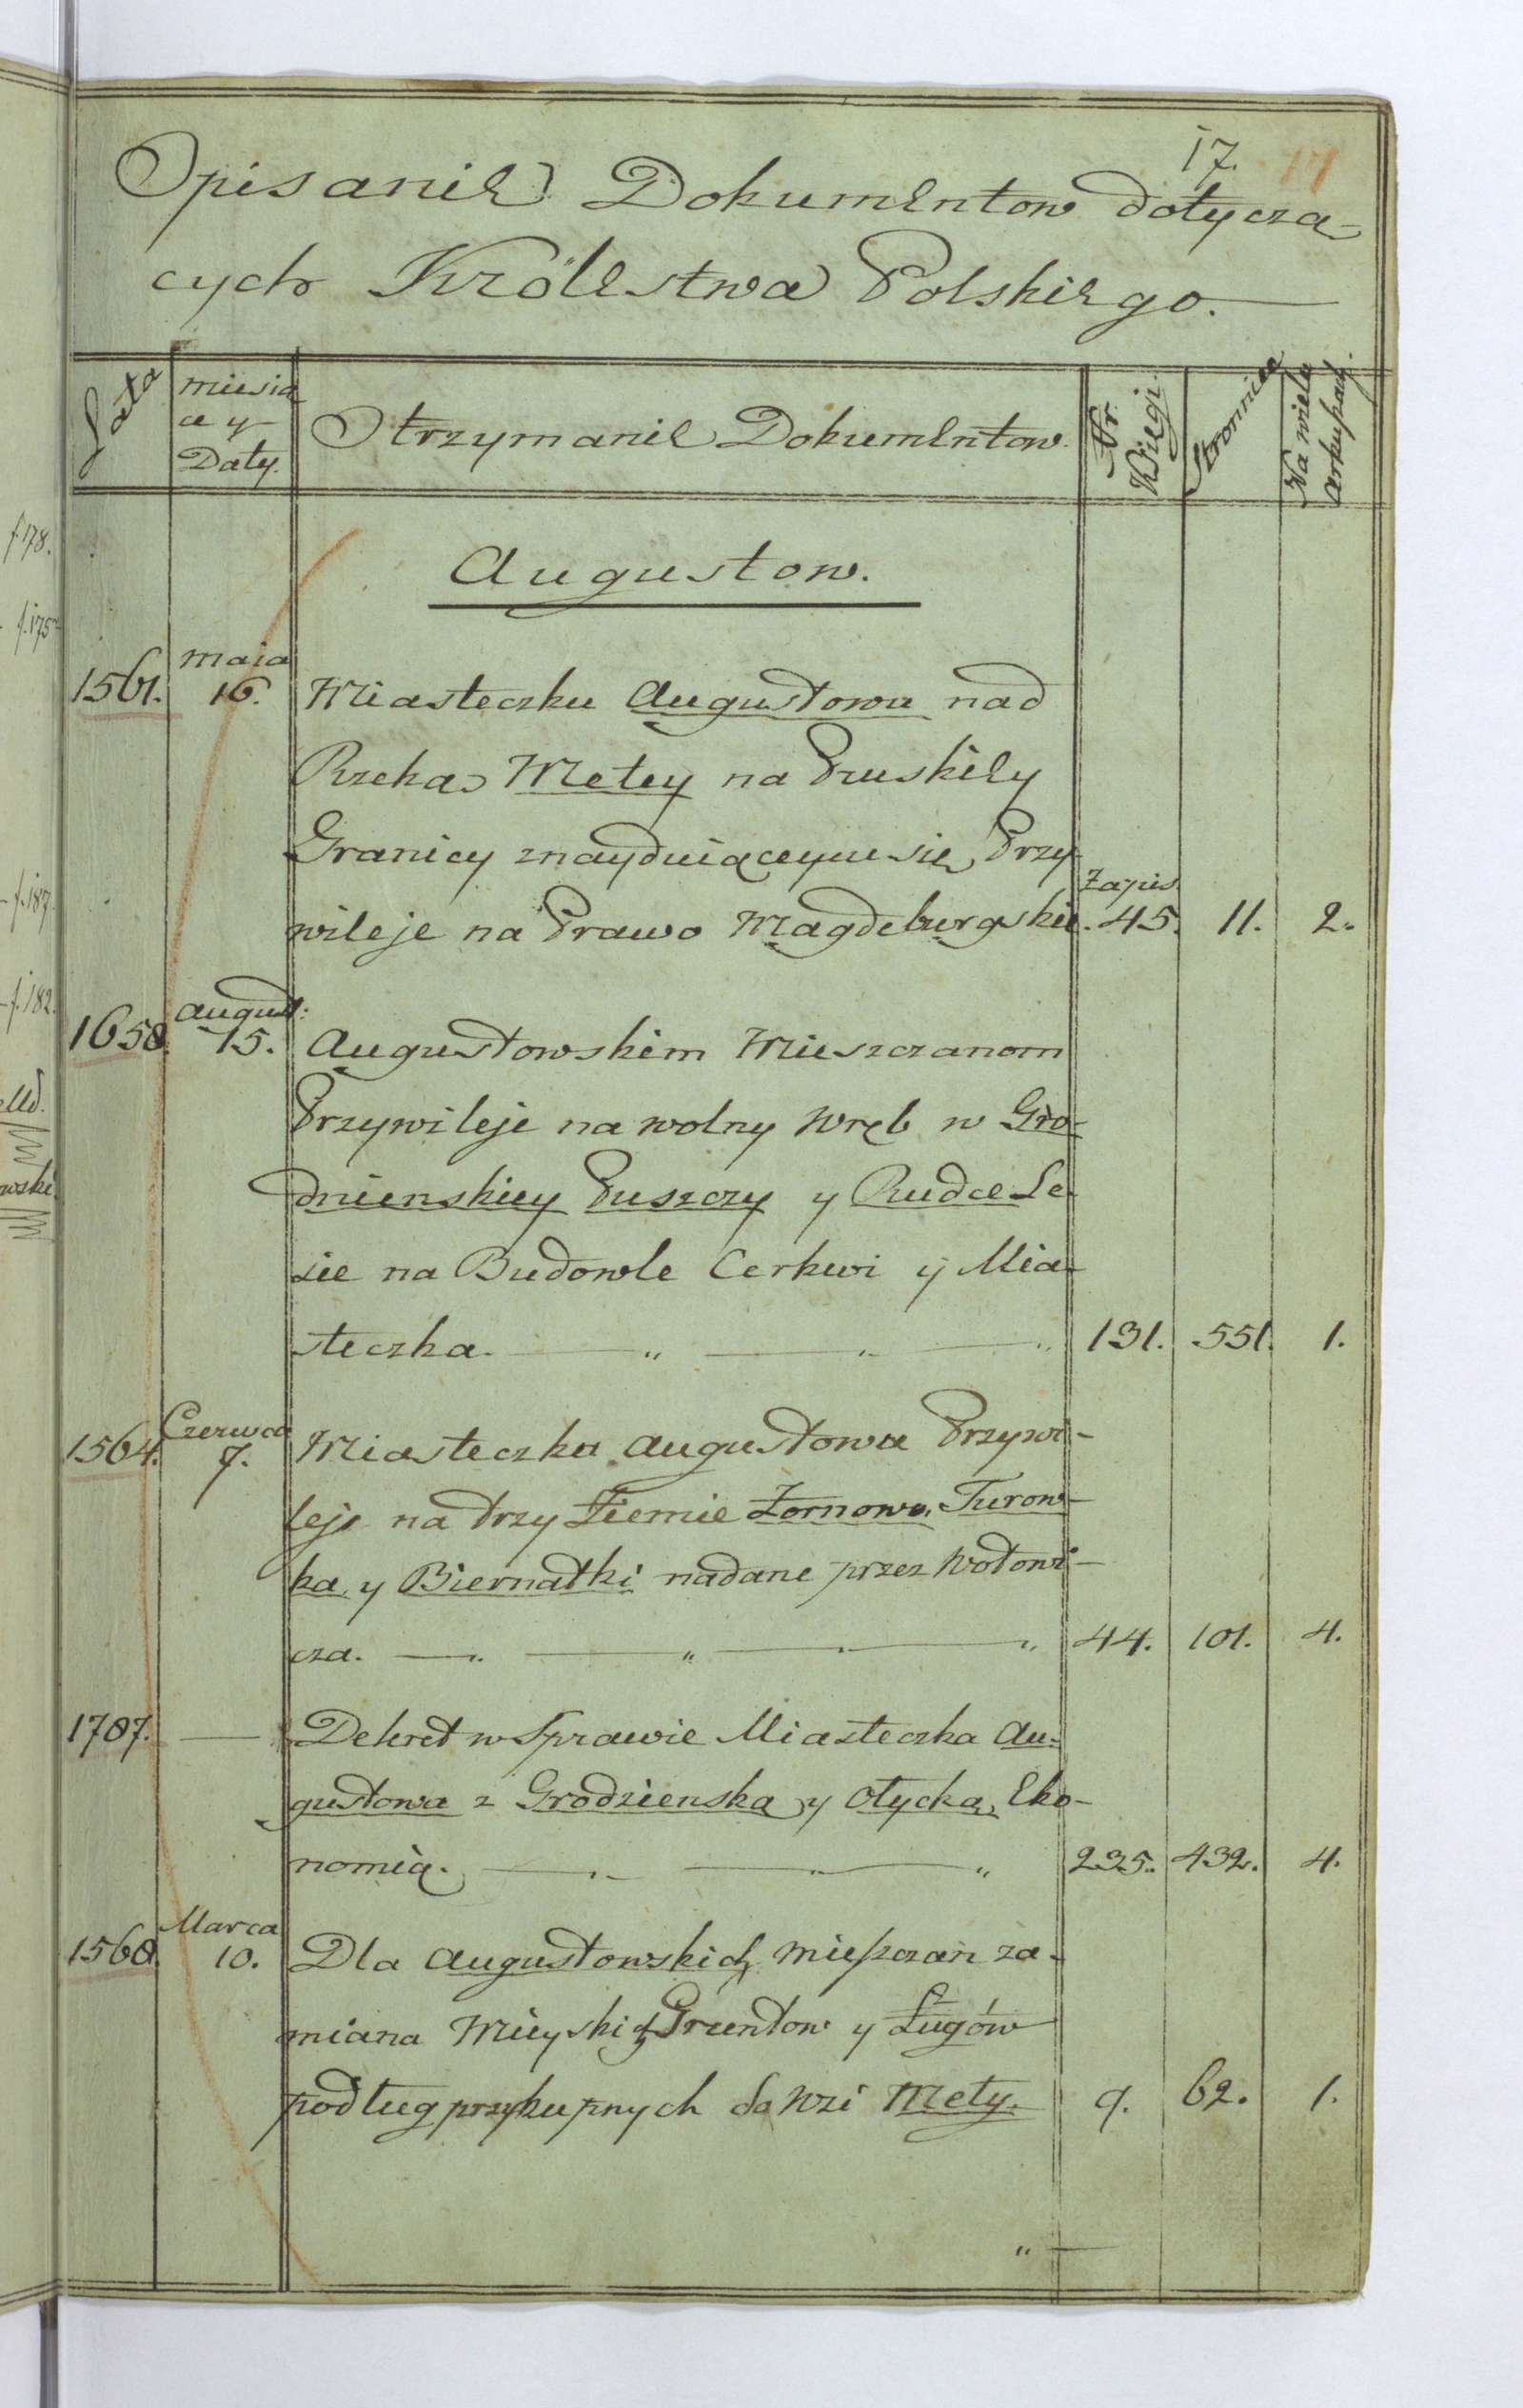 17. 17
Opisanie Dokumentow dotycza-
cych Królestwa Polskiego.
Lata
miesia
ce y
Daty.
Otrzymanie Dokumentow.
Nr
Księgi.
Stronnica
Na wielu
arkuszach.
Augustow.
maia
1561. 16. Miasteczku Augustowu nad
Rzeka Metey na Pruskiey
Granicy znayduiącymu się Przy
Zapis
wileje na Prawo Magdeburgskie. 45. 11. 2.
August:
1658. 15. Augustowskim Mieszczanom
Przywileje na wolny Wręb w Gro-
dnienskiey Puszczy y Rudce Le-
sie na Budowle Cerkwi y Mia-
steczka. 131. 551. 1.
Czerwca
1564. 7. Miasteczku Augustowu Przywi-
leje na trzy Ziemie Żornowo, Turow-
ka y Biernatki nadane przez Wołowi-
cza. 44. 101. 4.
1787. Dekret w Sprawie Miasteczka Au-
gustowa z Grodzienska y Olycką Eko-
nomią. 235. 432. 4.
Marca
1568. 10. Dla Augustowskich mieszczan za-
miana Mieyskich Gruntow y Ługów
podług przykupnych do Wsi Mety. 9. 62. 1.
f 178.
f. 175
f. 187.
f. 182.